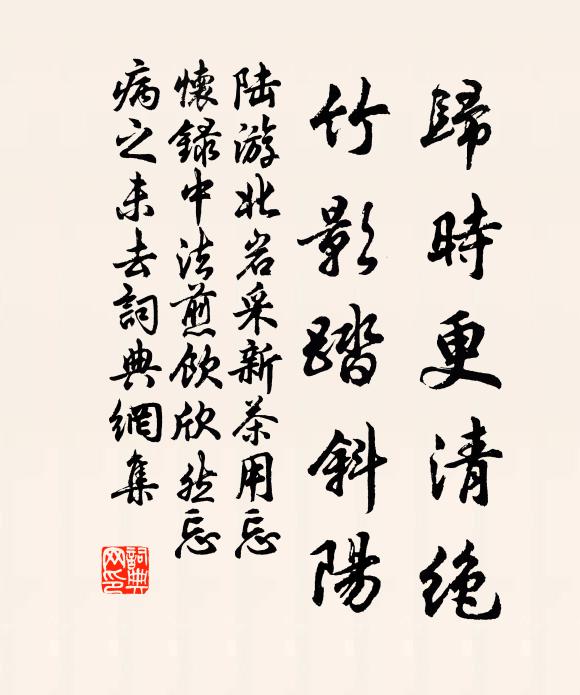 歸時更清绝
竹影踏斜陽
陆游北岩采新茶用忘
懷録中法煎飲欣然忘
病之未去詞典網集
詞典网印